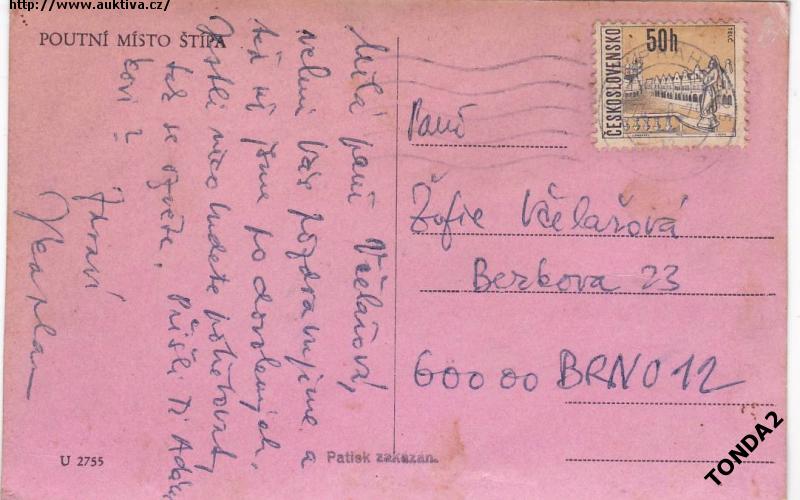 http://www.auktiva.cz/
POUTNÍ MÍSTO ŠTÍPA
Milá paní Včelařová,
velmi Vás pozdravujeme a
teď už jsme po dovolených.
Jestli něco budete potřebovat,
tak se ozvěte. Přišli Ti
Zdraví
U 2755
Patisk zakázán.
ČESKOSLOVENSKO
50h
Paní
Žofie Včelařová
Berkova 23
600 00 BRNO 12
TONDA2